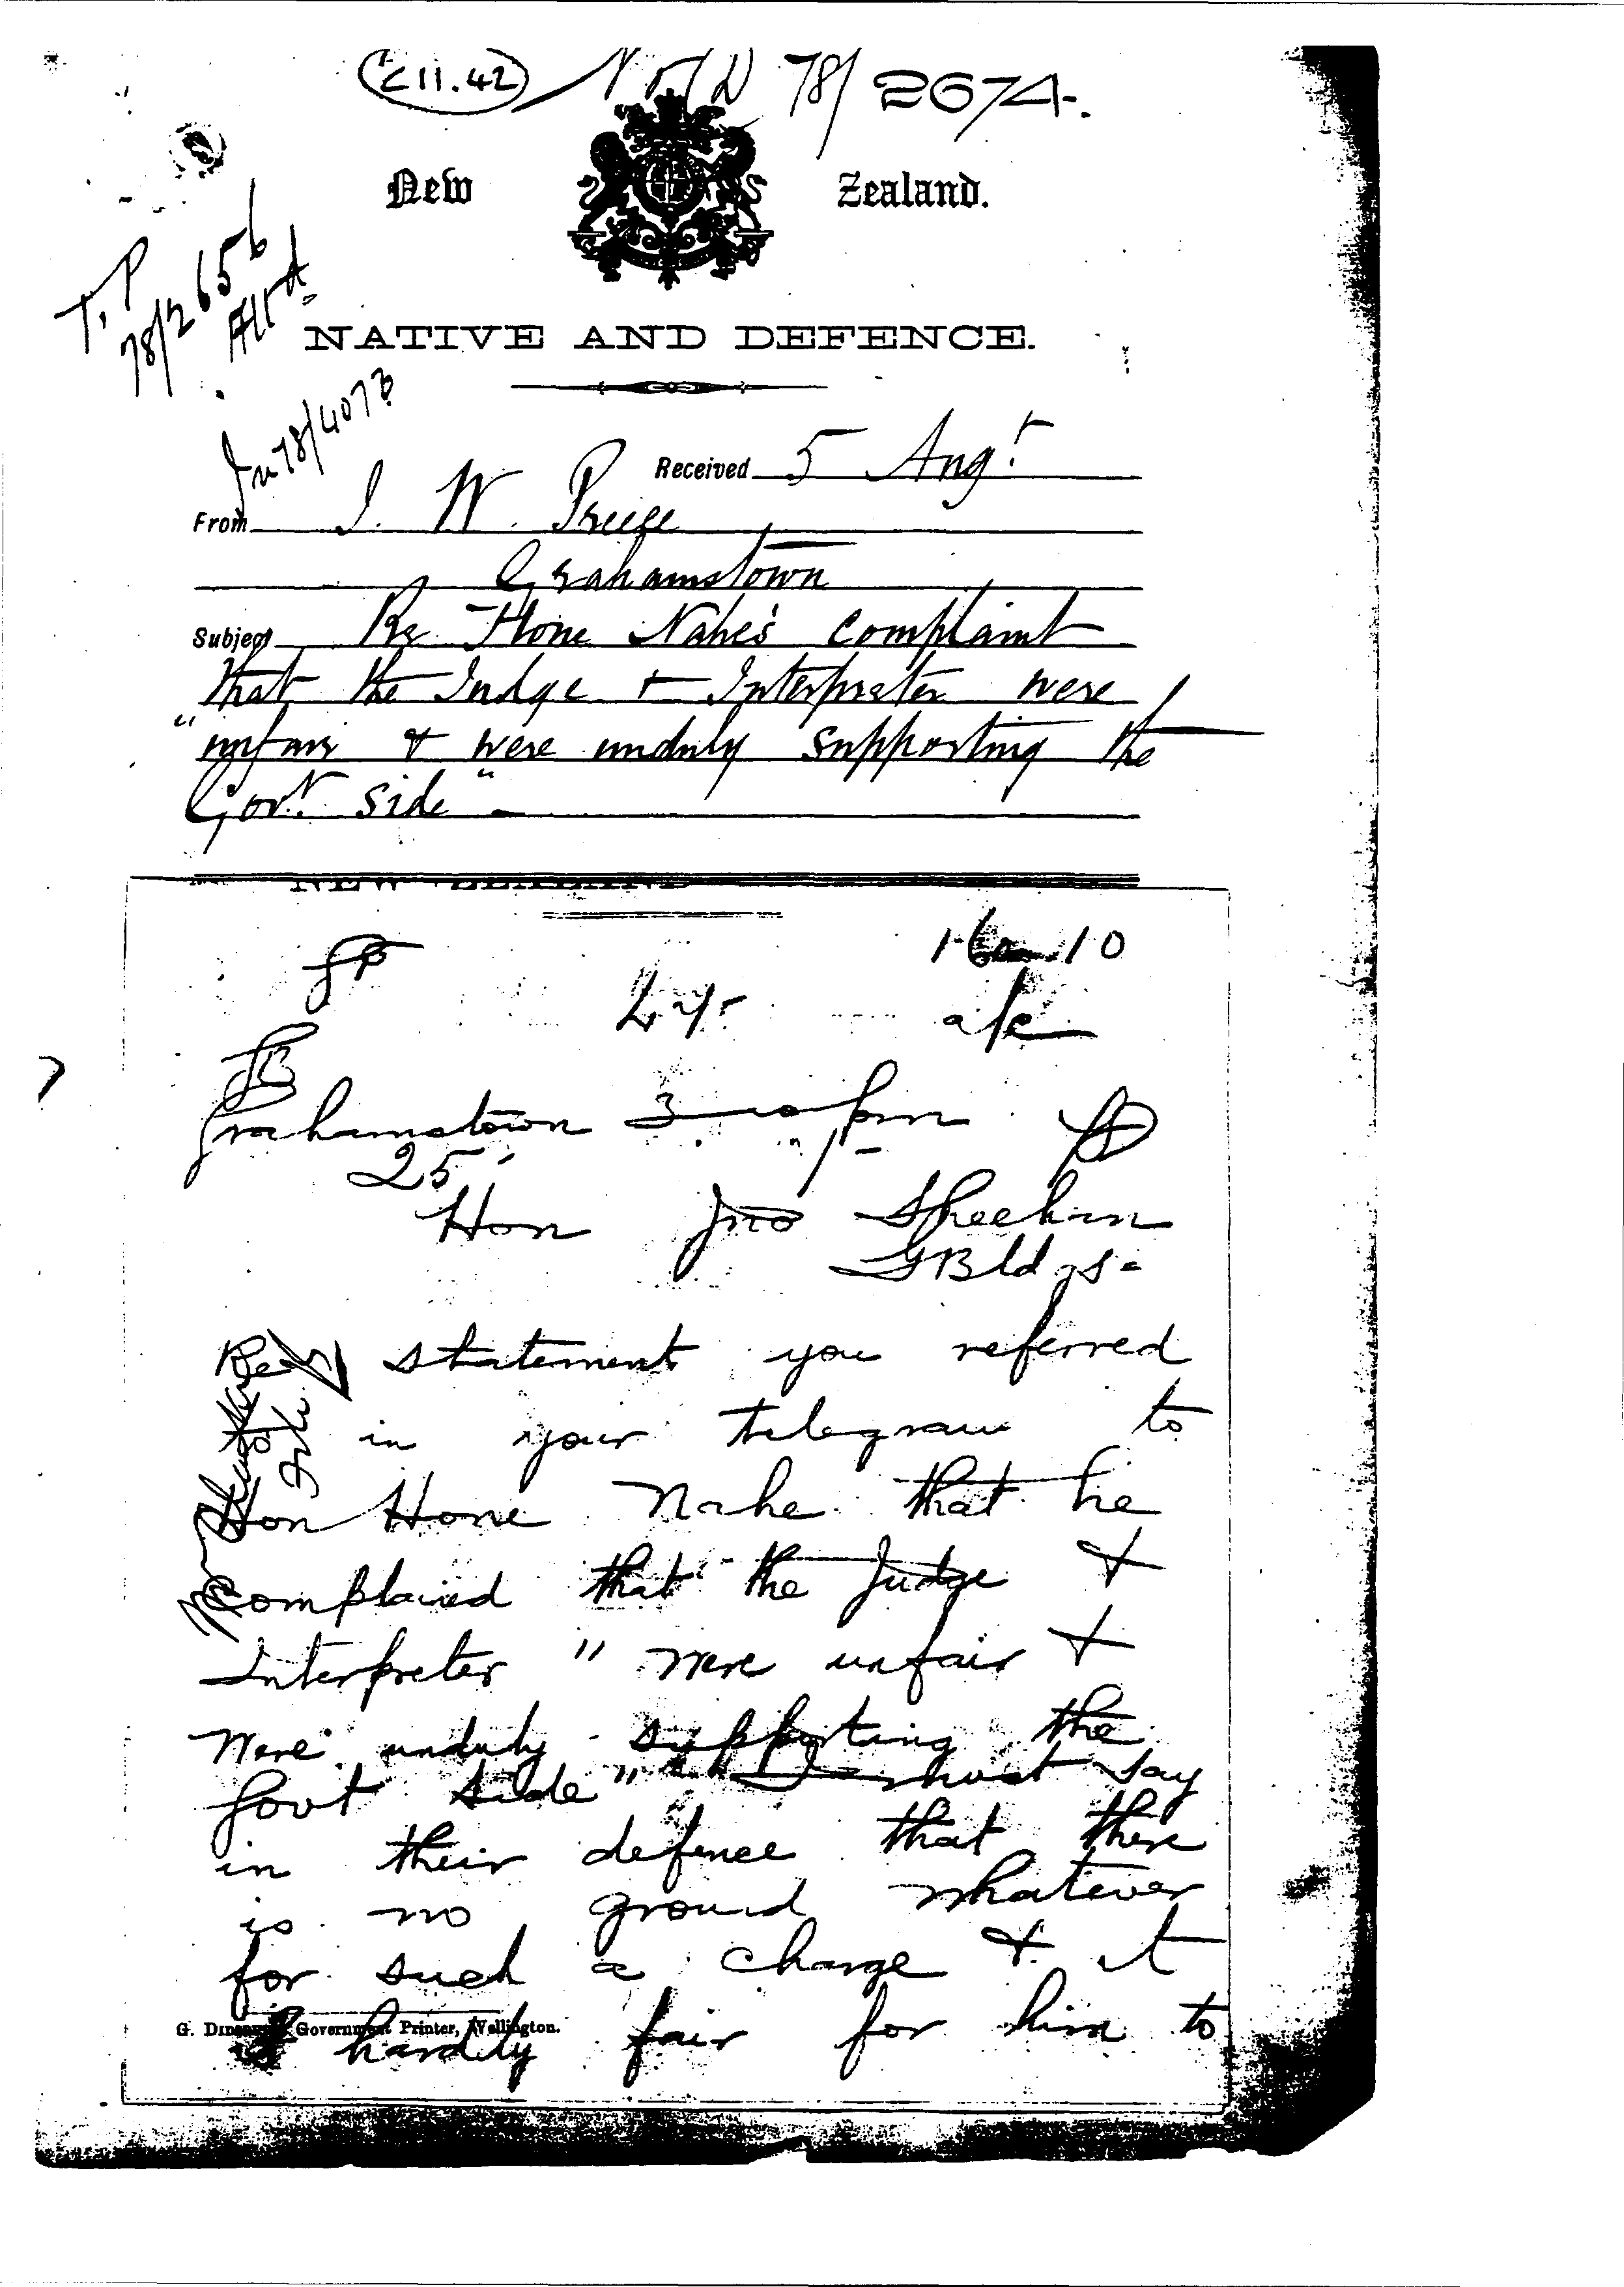 C 11.42 N & D 78/2674.
New Zealand.
T. P
78/2656
Attd
NATIVE AND DEFENCE.
In 78/4073
Received 5 Augt
From J. W. Preece
Grahamstown
Subject Re Hone Nahe's complaint
that the Judge & Interpreter were
"unfair & were unduly supporting the
Govt. side"
a/c
Grahamstown 3
25
Hon Jno Sheehan
G Bldgs
Re statement you referred
in your telegram to
Hon Hone Nahe that he
complained that the Judge &
Interpreter "were unfair &
were unduly supporting the
Govt side" I must say
in their defence that there
is no ground whatever
for such a charge & it
G. Didsbury, Government Printer, Wellington.
is hardly fair for him to